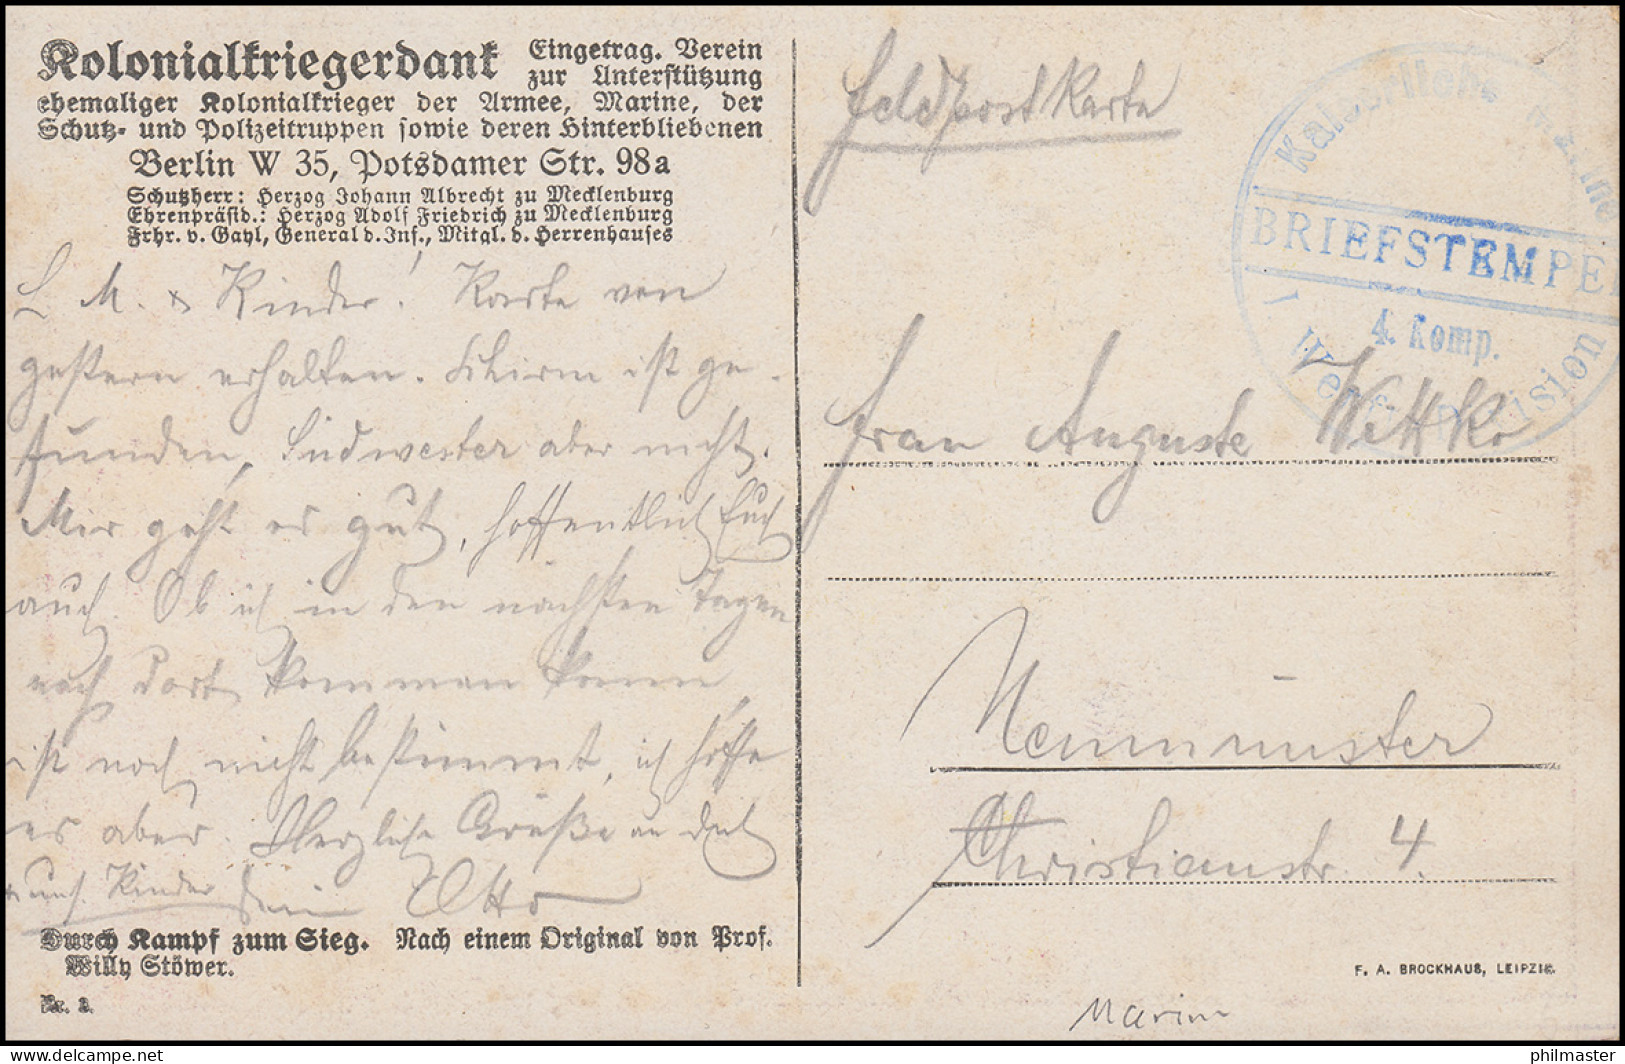 Kolonialkriegerdank Eingetrag. Verein
zur Unterstützung
ehemaliger Kolonialkrieger der Armee, Marine, der
Schutz- und Polizeitruppen sowie deren Hinterbliebenen
Berlin W 35, Potsdamer Str. 98a
Schutzherr: Herzog Johann Albrecht zu Mecklenburg
Ehrenpräsid.: Herzog Adolf Friedrich zu Mecklenburg
Frhr. v. Gayl, General d. Inf., Mitgl. d. Herrenhauses
L M. & Kinder! Karte von
gestern erhalten. Schirm ist ge-
funden, Südwester aber nicht.
Mir geht es gut, hoffentlich Euch
auch. Ob ich in den nächsten Tagen
nach dort kommen kann,
ist noch nicht bestimmt, ich hoffe
es aber. Herzliche Grüße an dich
und Kinder Dein Otto
Durch Kampf zum Sieg. Nach einem Original von Prof.
Willy Stöwer.
Nr. 3.
Feldpostkarte
Kaiserliche Marine
BRIEFSTEMPEL
4. Komp.
I Werft Division
Frau Auguste Wittko
Neumünster
Christianstr. 4.
F. A. BROCKHAUS, LEIPZIG.
Marine
philmaster